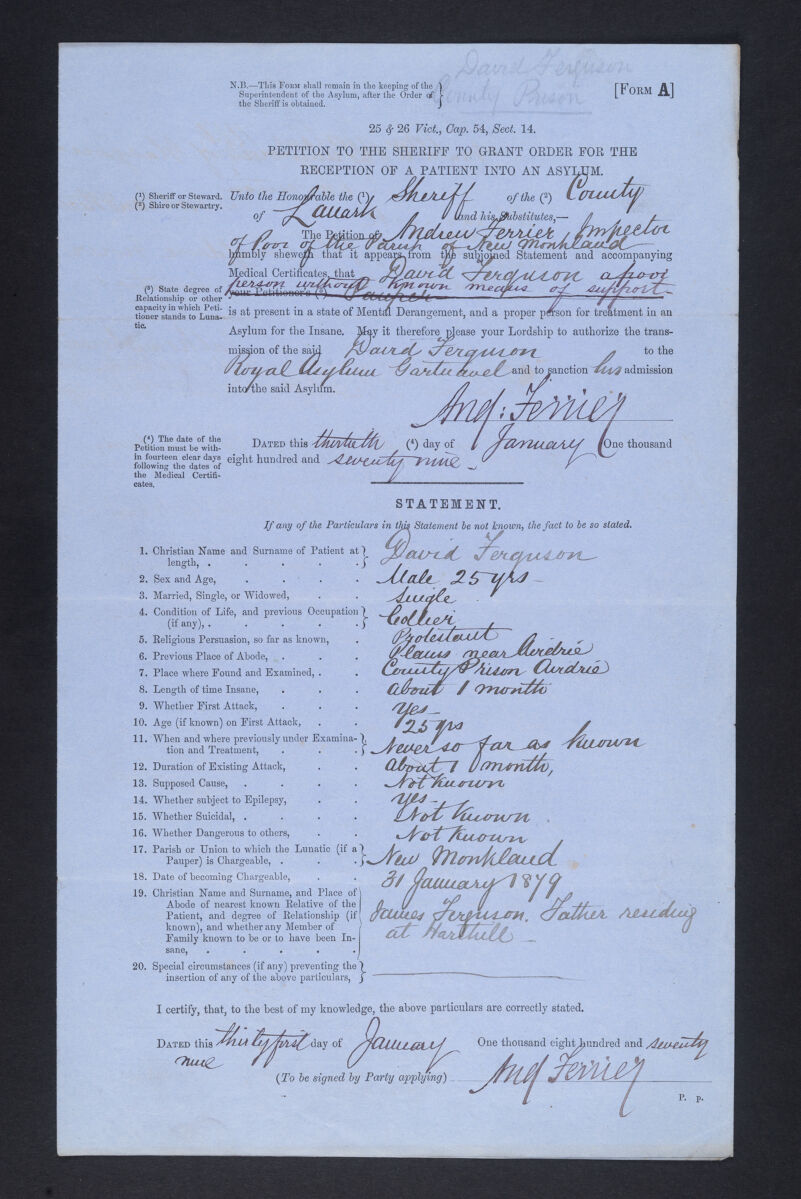 David Ferguson
County Prison
N.B.—This Form shall remain in the keeping of the
Superintendent of the Asylum, after the Order of
the Sheriff is obtained.
[Form A]
25 & 26 Vict., Cap. 54, Sect. 14.
PETITION TO THE SHERIFF TO GRANT ORDER FOR THE
RECEPTION OF A PATIENT INTO AN ASYLUM.
(1) Sheriff or Steward.
(2) Shire or Stewartry.
Unto the Honourable the (1) Sheriff of the (2) County
of Lanark and his Substitutes,—
The Petition of Andrew Ferrier Inspector
of Poor of the Parish of New Monkland
humbly sheweth that it appears from the subjoined Statement and accompanying
Medical Certificates, that David Ferguson a poor
person without known means of support
your Petitioner's (3) Pauper
(3) State degree of
Relationship or other
capacity in which Peti-
tioner stands to Luna-
tic.
is at present in a state of Mental Derangement, and a proper person for treatment in an
Asylum for the Insane. May it therefore please your Lordship to authorize the trans-
mission of the said David Ferguson to the
Royal Asylum Gartnavel and to sanction his admission
into the said Asylum.
And: Ferrier
(4) The date of the
Petition must be with-
in fourteen clear days
following the dates of
the Medical Certifi-
cates.
Dated this thirtieth (4) day of January One thousand
eight hundred and seventy nine
STATEMENT.
If any of the Particulars in this Statement be not known, the fact to be so stated.
1. Christian Name and Surname of Patient at
length, . . . . . David Ferguson
2. Sex and Age, . . . . Male 25 yrs
3. Married, Single, or Widowed, . . Single
4. Condition of Life, and previous Occupation
(if any), . . . . . Collier
5. Religious Persuasion, so far as known, . Protestant
6. Previous Place of Abode, . . . Plains near Airdrie
7. Place where Found and Examined, . . County Prison Airdrie
8. Length of time Insane, . . . about 1 month
9. Whether First Attack, . . . Yes
10. Age (if known) on First Attack, . . 25 yrs
11. When and where previously under Examina-
tion and Treatment, . . . Never so far as known
12. Duration of Existing Attack, . . About 1 month,
13. Supposed Cause, . . . . Not known
14. Whether subject to Epilepsy, . . Yes
15. Whether Suicidal, . . . . Not known
16. Whether Dangerous to others, . . Not known
17. Parish or Union to which the Lunatic (if a
Pauper) is Chargeable, . . . New Monkland
18. Date of becoming Chargeable, . . 31 January 1879
19. Christian Name and Surname, and Place of
Abode of nearest known Relative of the
Patient, and degree of Relationship (if
known), and whether any Member of
Family known to be or to have been In-
sane, . . . . .
James Ferguson. Father residing
at Harthill
20. Special circumstances (if any) preventing the
insertion of any of the above particulars,
I certify, that, to the best of my knowledge, the above particulars are correctly stated.
Dated this thirty first day of January One thousand eight hundred and seventy
nine
(To be signed by Party applying) And Ferrier
P. p.